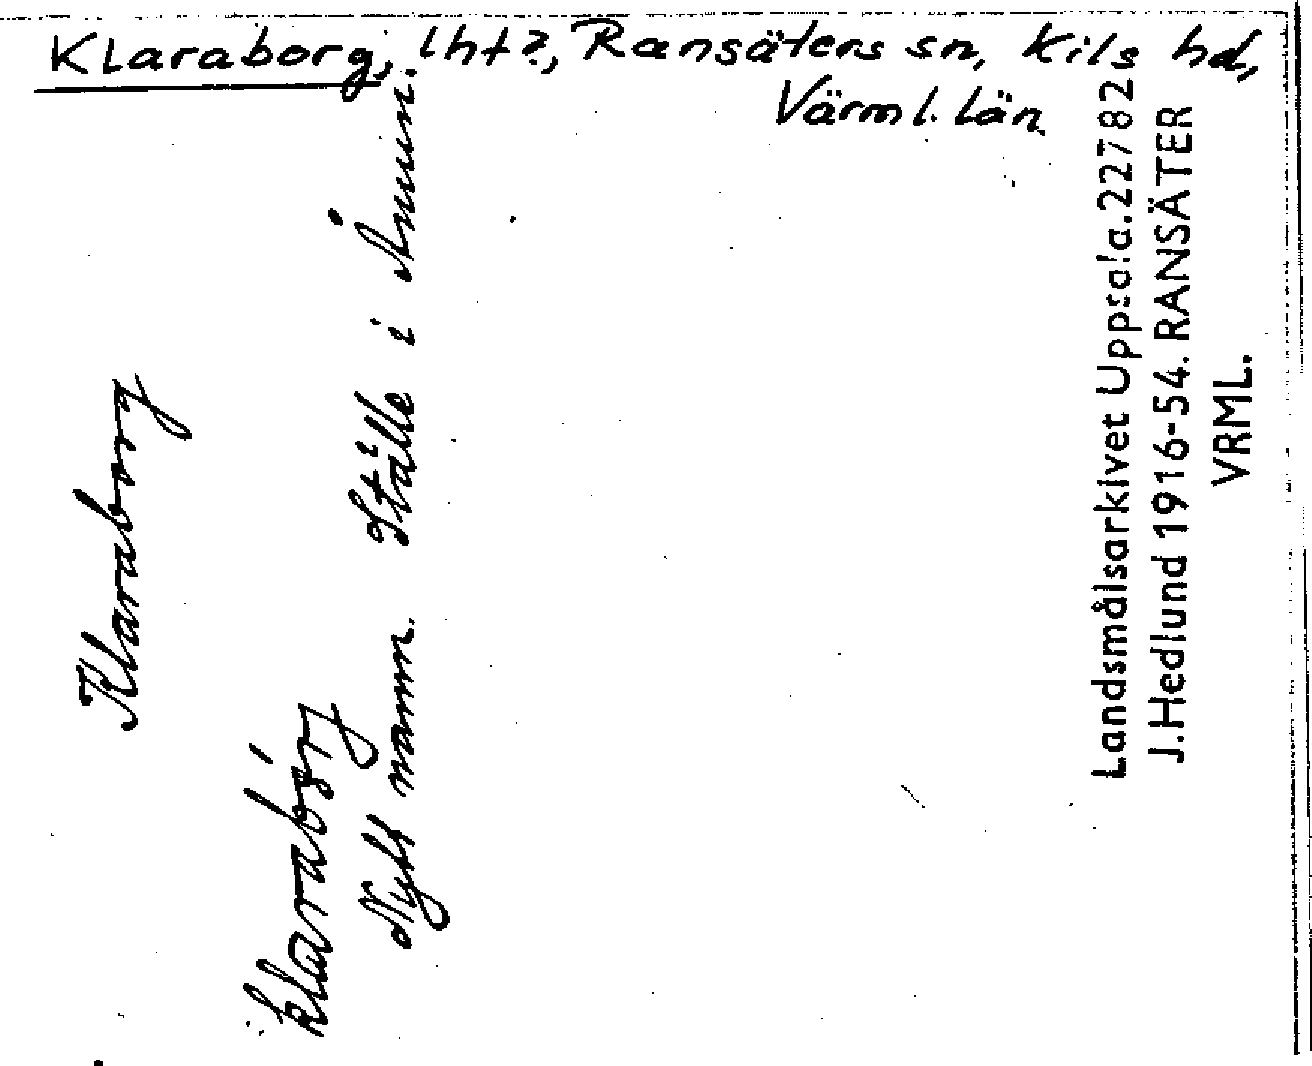 Klaraborg, lht?, Ransäters sn, Kils hd,
Värml. län
Klaraborg
klarabórj
Nytt namn. Ställe i Ånimin.
Landsmålsarkivet Uppsala.22782
J.Hedlund 1916-54. RANSÄTER
VRML.